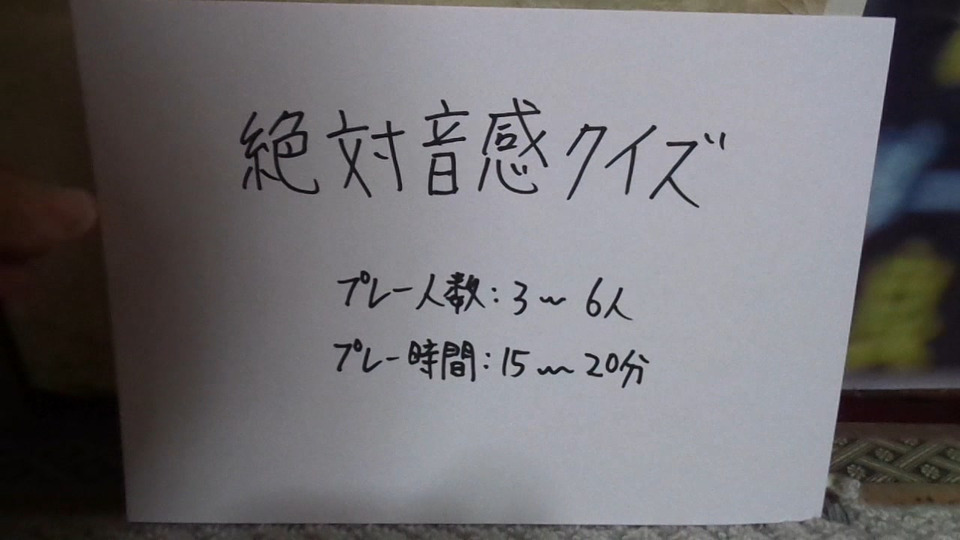 絶対音感クイズ
プレー人数:3〜6人
プレー時間:15〜20分